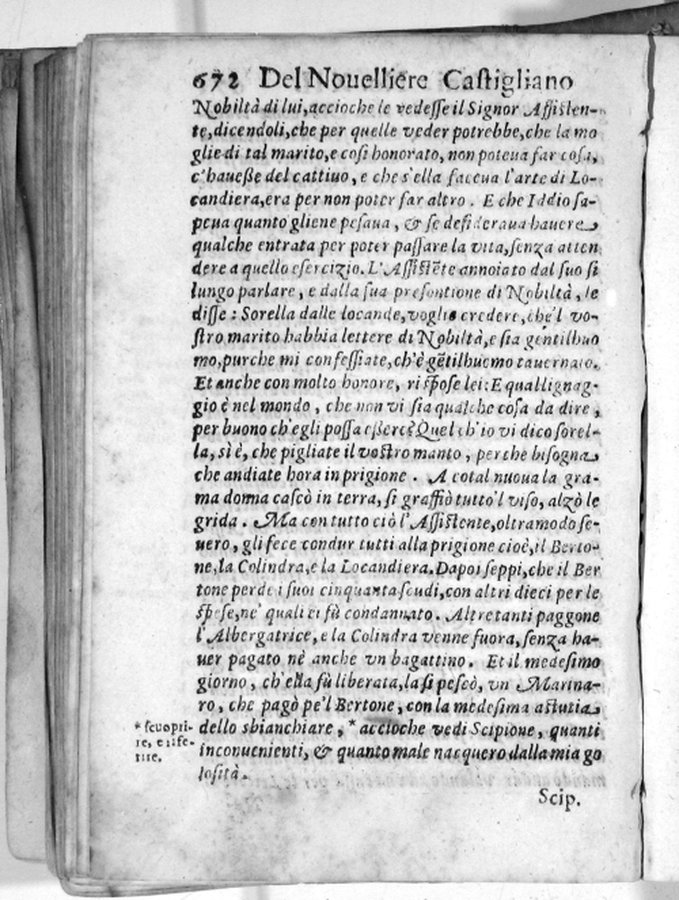 672 Del Nouelliere Castigliano
Nobiltà di lui, accioche le vedesse il Signor Assisten-
te, dicendoli, che per quelle veder potrebbe, che la mo
glie di tal marito, e cosi honorato, non poteua far cosa,
c'hauesse del cattiuo, e che s'ella faceua l'arte di Lo-
candiera, era per non poter far altro. E che Iddio sa-
peua quanto gliene pesaua, & se desideraua hauere
qualche entrata per poter passare la vita, senza atten
dere a quello esercizio. L'Assistẽte annoiato dal suo sì
lungo parlare, e dalla sua presontione di Nobiltà, le
disse: Sorella dalle locande, voglio credere, che'l vo-
stro marito habbia lettere di Nobiltà, e sia gentilhuo
mo, purche mi confessiate, ch'è gẽtilhuomo tauernaio.
Et anche con molto honore, rispose lei: E qual lignag-
gio è nel mondo, che non vi sia qualche cosa da dire,
per buono ch'egli possa essere? Quel ch'io vi dico sorel-
la, sì è, che pigliate il vostro manto, perche bisogna
che andiate hora in prigione. A cotal nuoua la gra-
ma donna cascò in terra, si graffiò tutto'l viso, alzò le
grida. Ma con tutto ciò l'Assistente, oltramodo se-
uero, gli fece condur tutti alla prigione cioè, il Berto-
ne, la Colindra, e la Locandiera. Dapoi seppi, che il Ber
tone perde i suoi cinquanta scudi, con altri dieci per le
spese, ne' quali ei fù condannato. Altretanti paggone
l'Albergatrice, e la Colindra venne fuora, senza ha-
uer pagato nè anche vn bagattino. Et il medesimo
giorno, ch'ella fù liberata, la si pescò, vn Marina-
ro, che pagò pe'l Bertone, con la medesima astutia
dello sbianchiare, * accioche vedi Scipione, quanti
inconuenienti, & quanto male nacquero dalla mia go
losità.
* scuopri-
re, e
rire.
Scip.